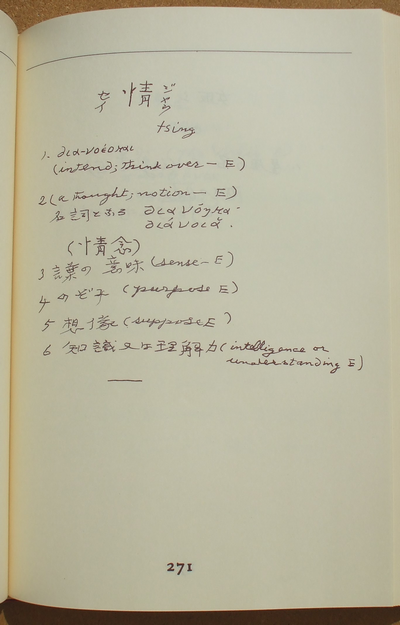 セイ 情 ジャウ
tsing
1. διά-νοέομαι
(intend; think over — E)
2 (a thought; notion — E)
名詞となる διανόημα
διάνοιᾰ.
(情念)
3 語葉の意味 (sense — E)
4 のぞみ (purpose E)
5 想像 (suppose E)
6 知識又は理解力 (intelligence or
understanding E)
271